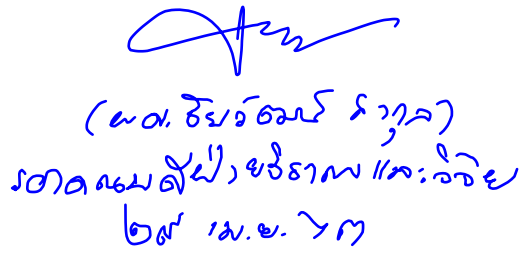 (ผศ.ชัยวัฒน์ ภากุล)
รองคณบดีฝ่ายวิชาการและวิจัย
๒๙ เม.ย. ๖๓